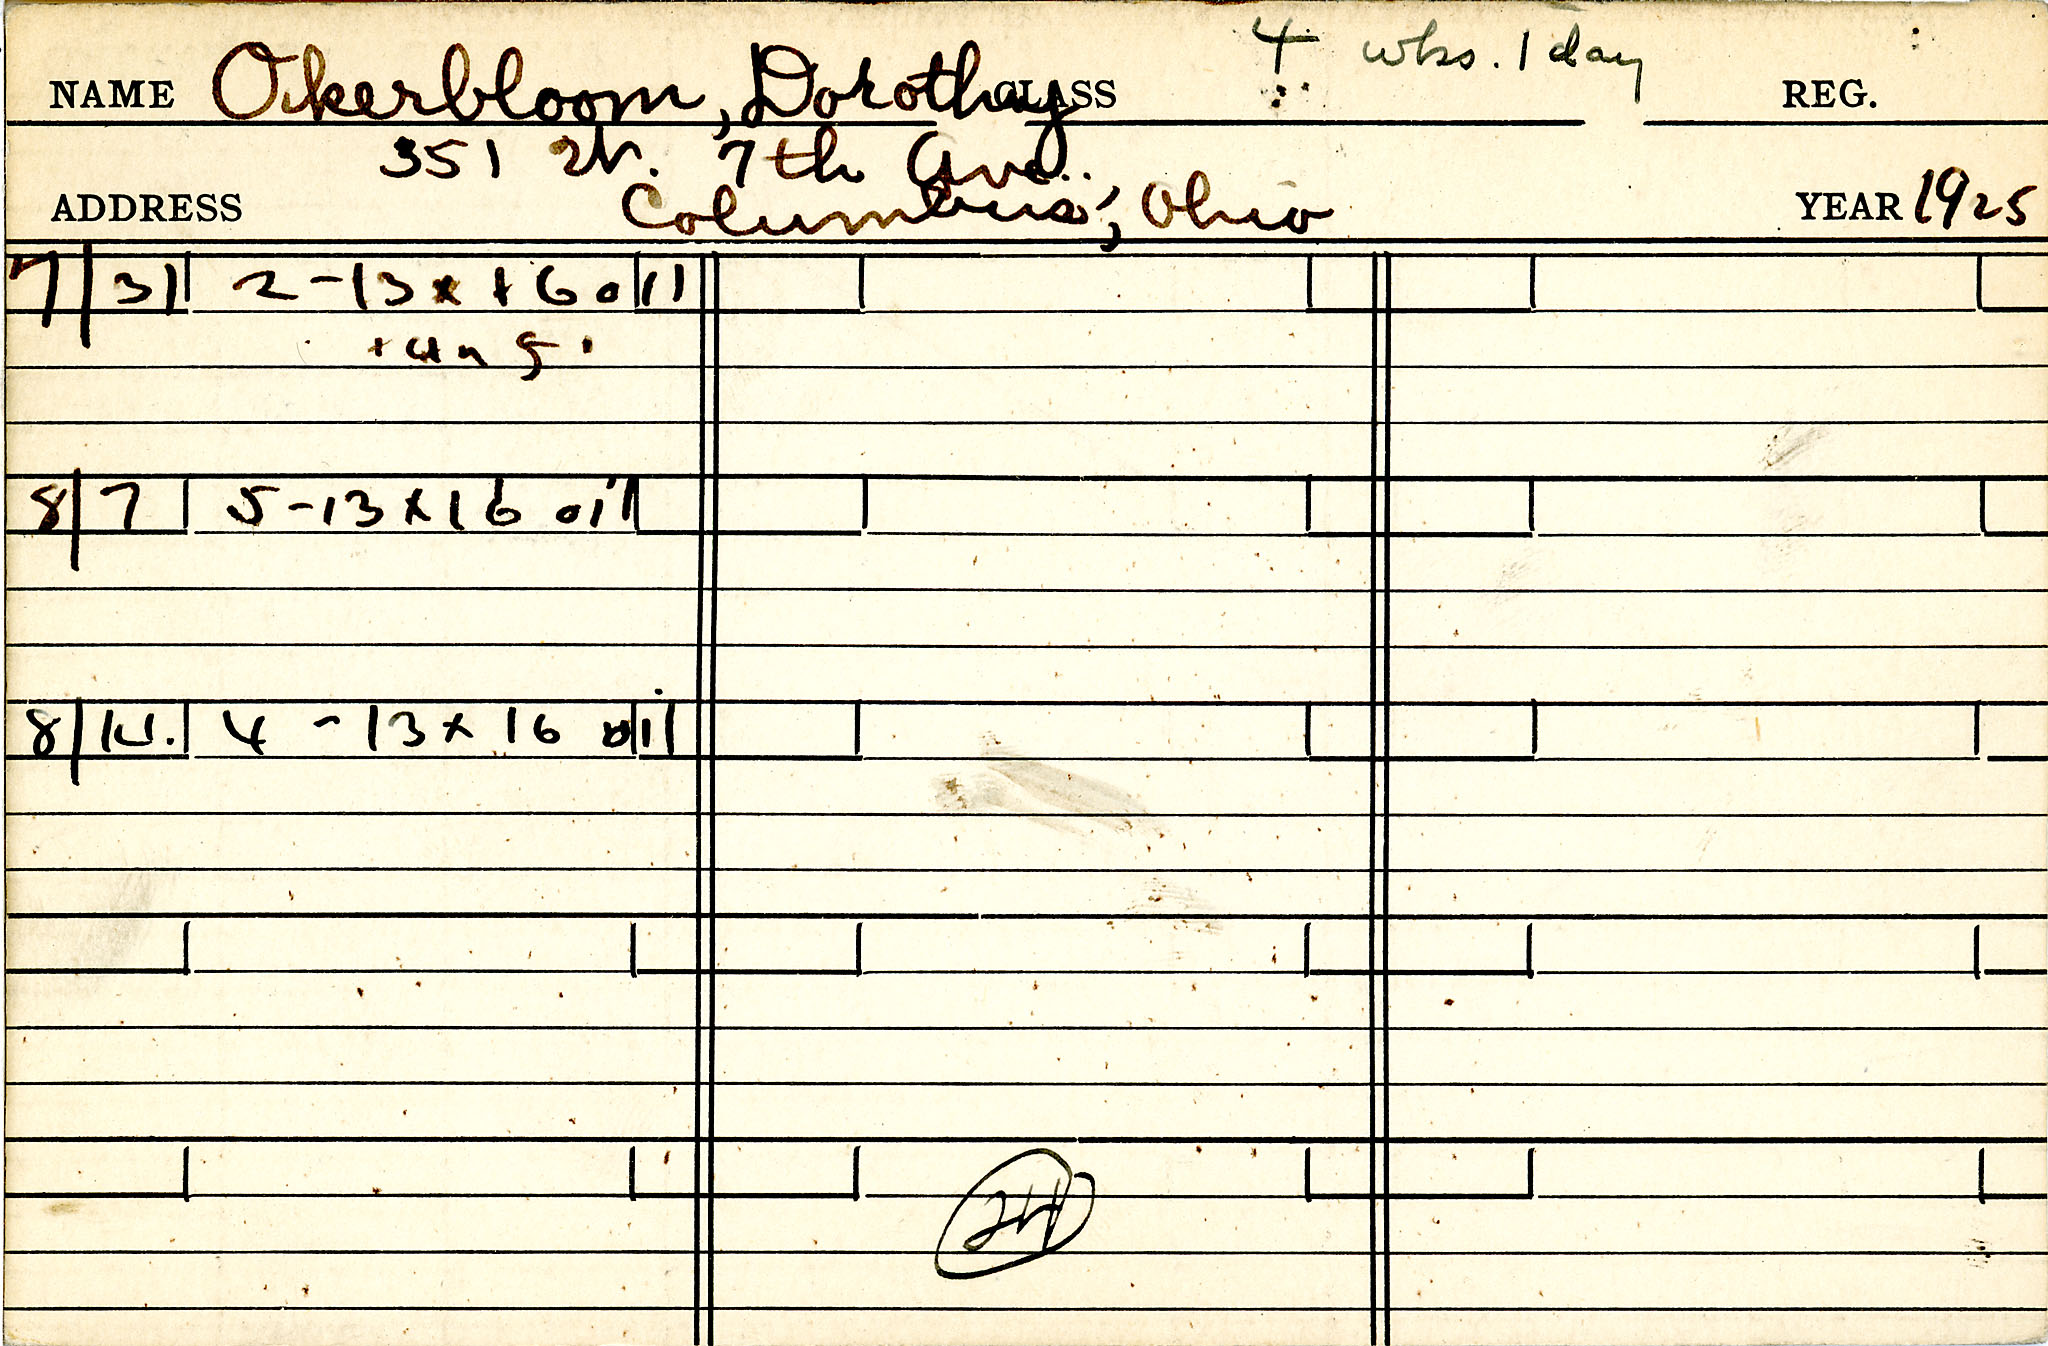 NAME Okerbloom, Dorothy CLASS 4 wks. 1 day REG.
351 W. 7th Ave.
ADDRESS Columbus, Ohio YEAR 1925
7 31 2-13 x 16 oil
8 7 5-13 x 16 oil
8 14. 4 - 13 x 16 oil
24